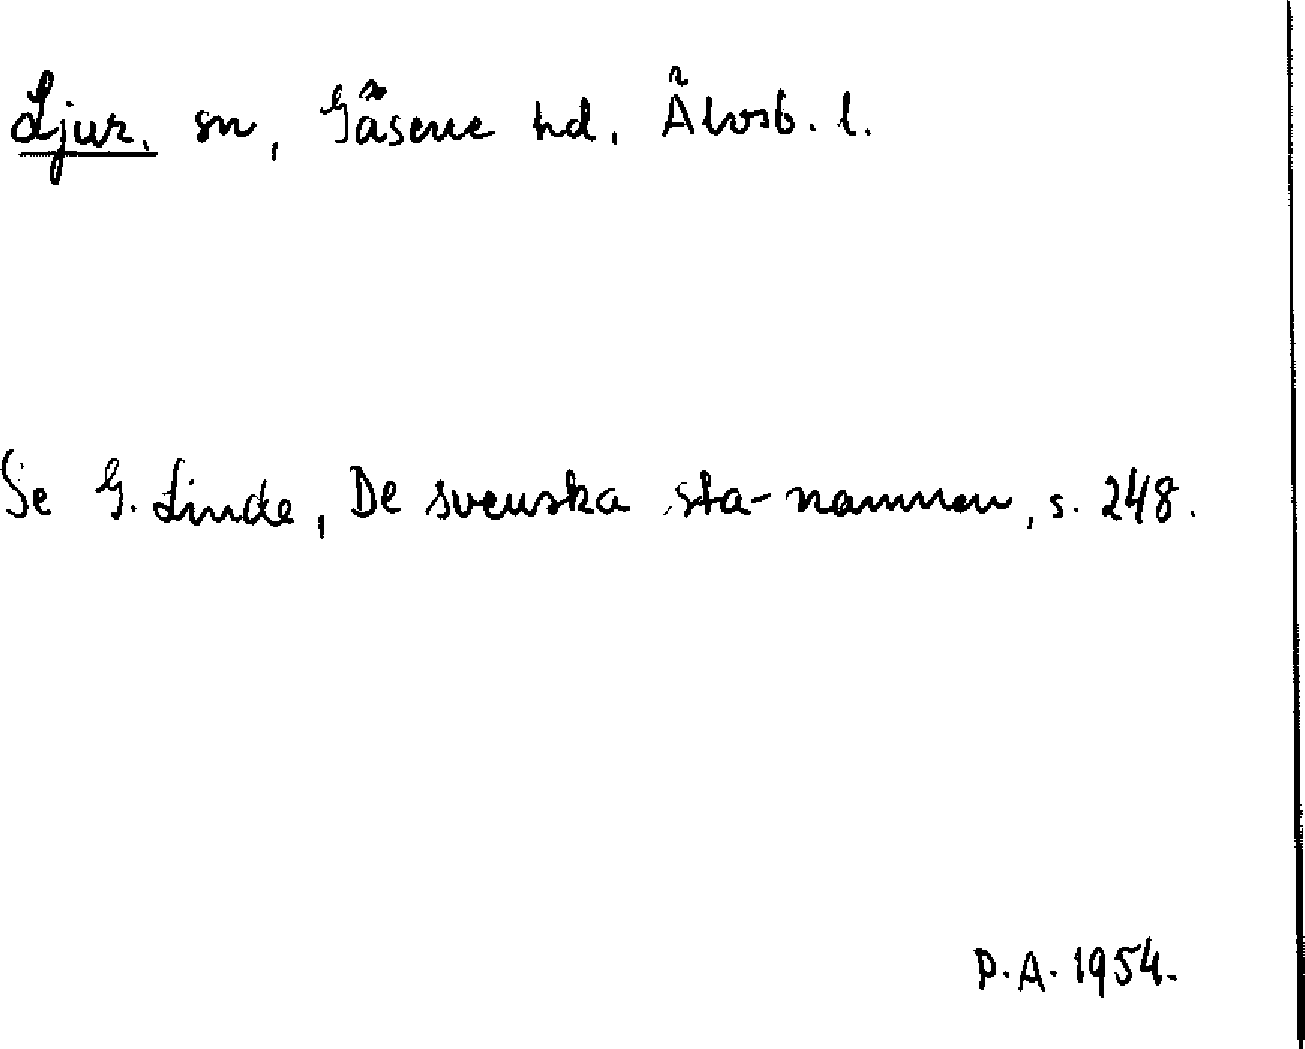 Ljur. sn, Gäsene hd. Älvsb. l.
Se G. Linde, De svenska sta-namnen, s. 248.
P.A. 1954.